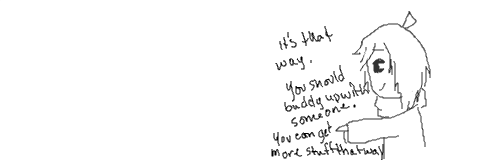 it's that
way.
You should
buddy up with
someone.
You can get
more stuff that way